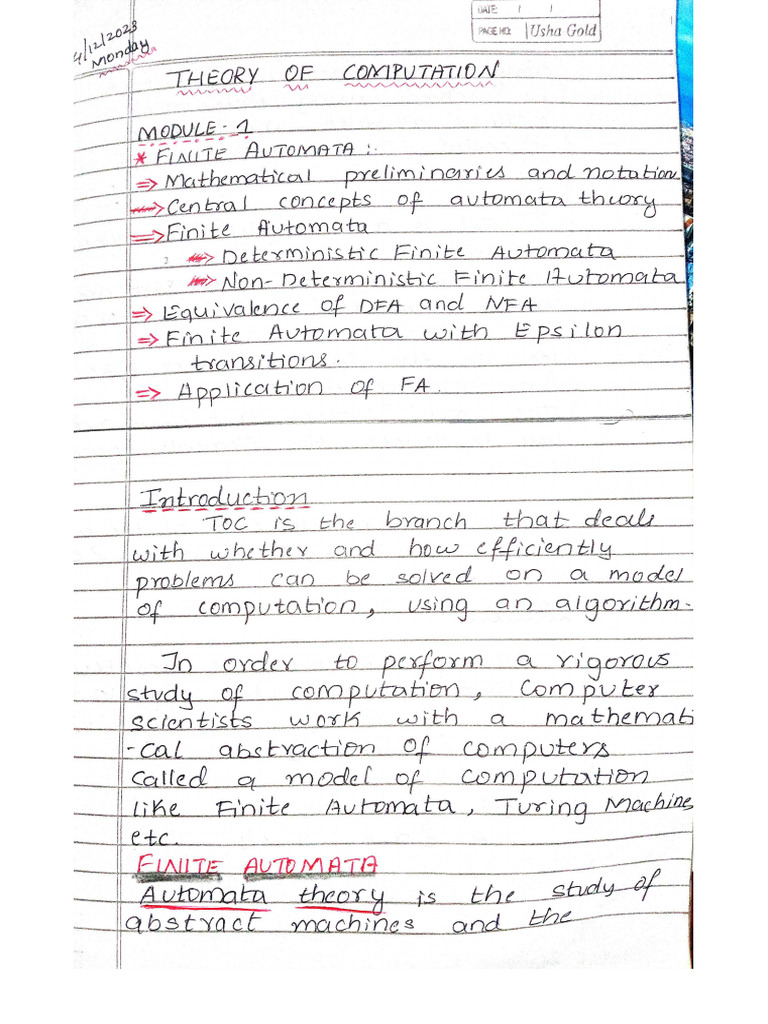 DATE: / /
PAGE NO: Usha Gold
4/12/2023
Monday
THEORY OF COMPUTATION
MODULE-1
* FINITE AUTOMATA:
⇒ Mathematical preliminaries and notation
⇒ Central concepts of automata theory
⇒ Finite Automata
⇒ Deterministic Finite Automata
⇒ Non-Deterministic Finite Automata
⇒ Equivalence of DFA and NFA
⇒ Finite Automata with Epsilon
transitions.
⇒ Application of FA.
Introduction
TOC is the branch that deals
with whether and how efficiently
problems can be solved on a model
of computation, using an algorithm.
In order to perform a rigorous
study of computation, Computer
scientists work with a mathemati
-cal abstraction of computers
called a model of computation
like Finite Automata, Turing Machine
etc.
FINITE AUTOMATA
Automata theory is the study of
abstract machines and the